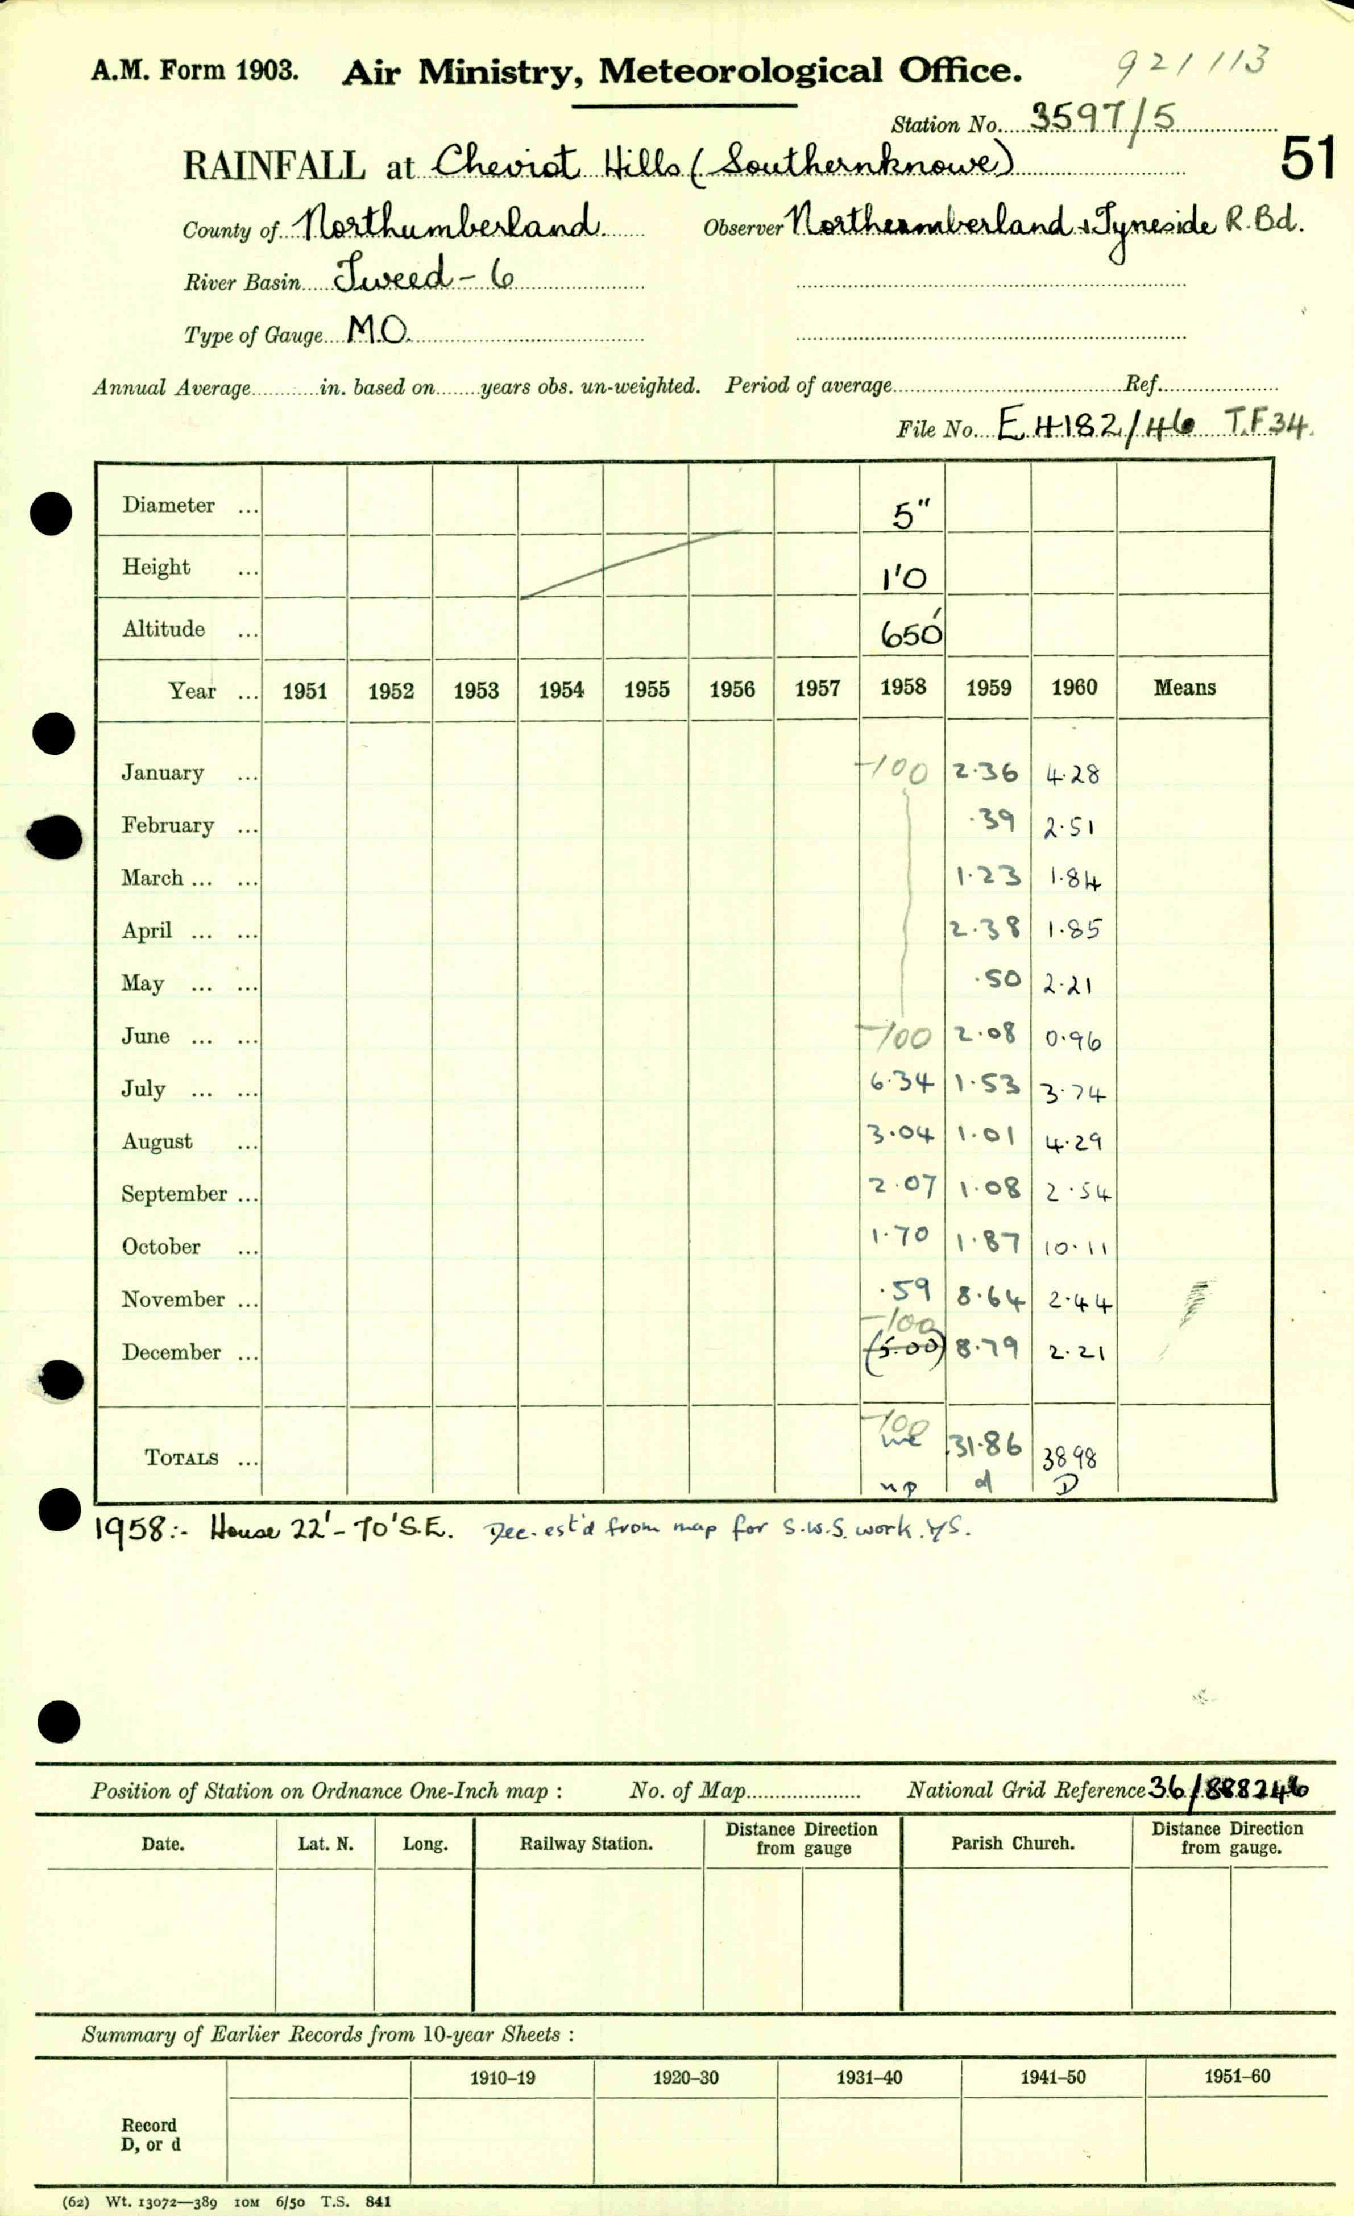 A.M. Form 1903. Air Ministry, Meteorological Office. 921113
Station No. 3597/5
51
RAINFALL at Cheviot Hills (Southernknowe)
County of Northumberland. Observer Northumberland & Tyneside R. Bd.
River Basin Tweed - 6
Type of Gauge M.O.
Annual Average in. based on years obs. un-weighted. Period of average Ref.
File No. E H182/46 T.F34.
Diameter ... 5"
Height ... 1'0
Altitude ... 650'
Year ... 1951 1952 1953 1954 1955 1956 1957 1958 1959 1960 Means
January ... -100 2.36 4.28
February ... .39 2.51
March ... ... 1.23 1.84
April ... ... 2.38 1.85
May ... ... .50 2.21
June ... ... -100 2.08 0.96
July ... ... 6.34 1.53 3.74
August ... 3.04 1.01 4.29
September ... 2.07 1.08 2.54
October ... 1.70 1.87 10.11
November ... .59 8.64 2.44
-100
December ... (5.00) 8.79 2.21
-100
TOTALS ... inc 31.86 38.98
np d D
1958:- House 22'- 70'S.E. Dec. est'd from map for S.W.S. work. YS.
Position of Station on Ordnance One-Inch map : No. of Map National Grid Reference 36/888246
Date. Lat. N. Long. Railway Station. Distance from Direction gauge Parish Church. Distance from Direction gauge.
Summary of Earlier Records from 10-year Sheets :
1910–19 1920–30 1931–40 1941–50 1951–60
Record
D, or d
(62) Wt. 13072—389 10M 6/50 T.S. 841